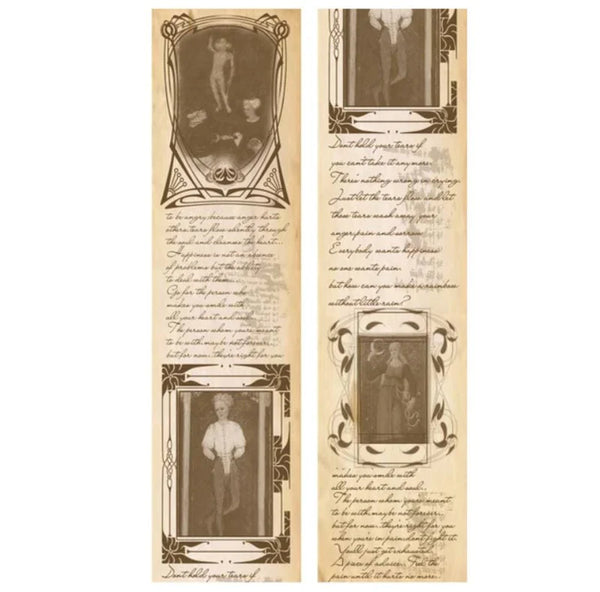 to be angry, because anger hurts
others, tears flow silently through
the soul and cleanses the heart...
Happiness is not an absence
of problems but the ability
to deal with them...
Go for the person who
makes you smile with
all your heart and soul...
The person whom you're meant
to be with, may be not forever...
but for now...they're right for you
Don't hold your tears if
Don't hold your tears if
you can't take it anymore.
There's nothing wrong in crying.
Just let the tears flow and let
those tears wash away your
anger,pain and sorrow.
Everybody wants happiness
no one wants pain.
but how can you make a rainbow
without little rain?
makes you smile with
all your heart and soul...
The person whom you're meant
to be with, may be not forever...
but for now...they're right for you
when you're in pain, don't fight it.
You'll just get exhausted.
A piece of advice... Feel the
pain until it hurts no more..